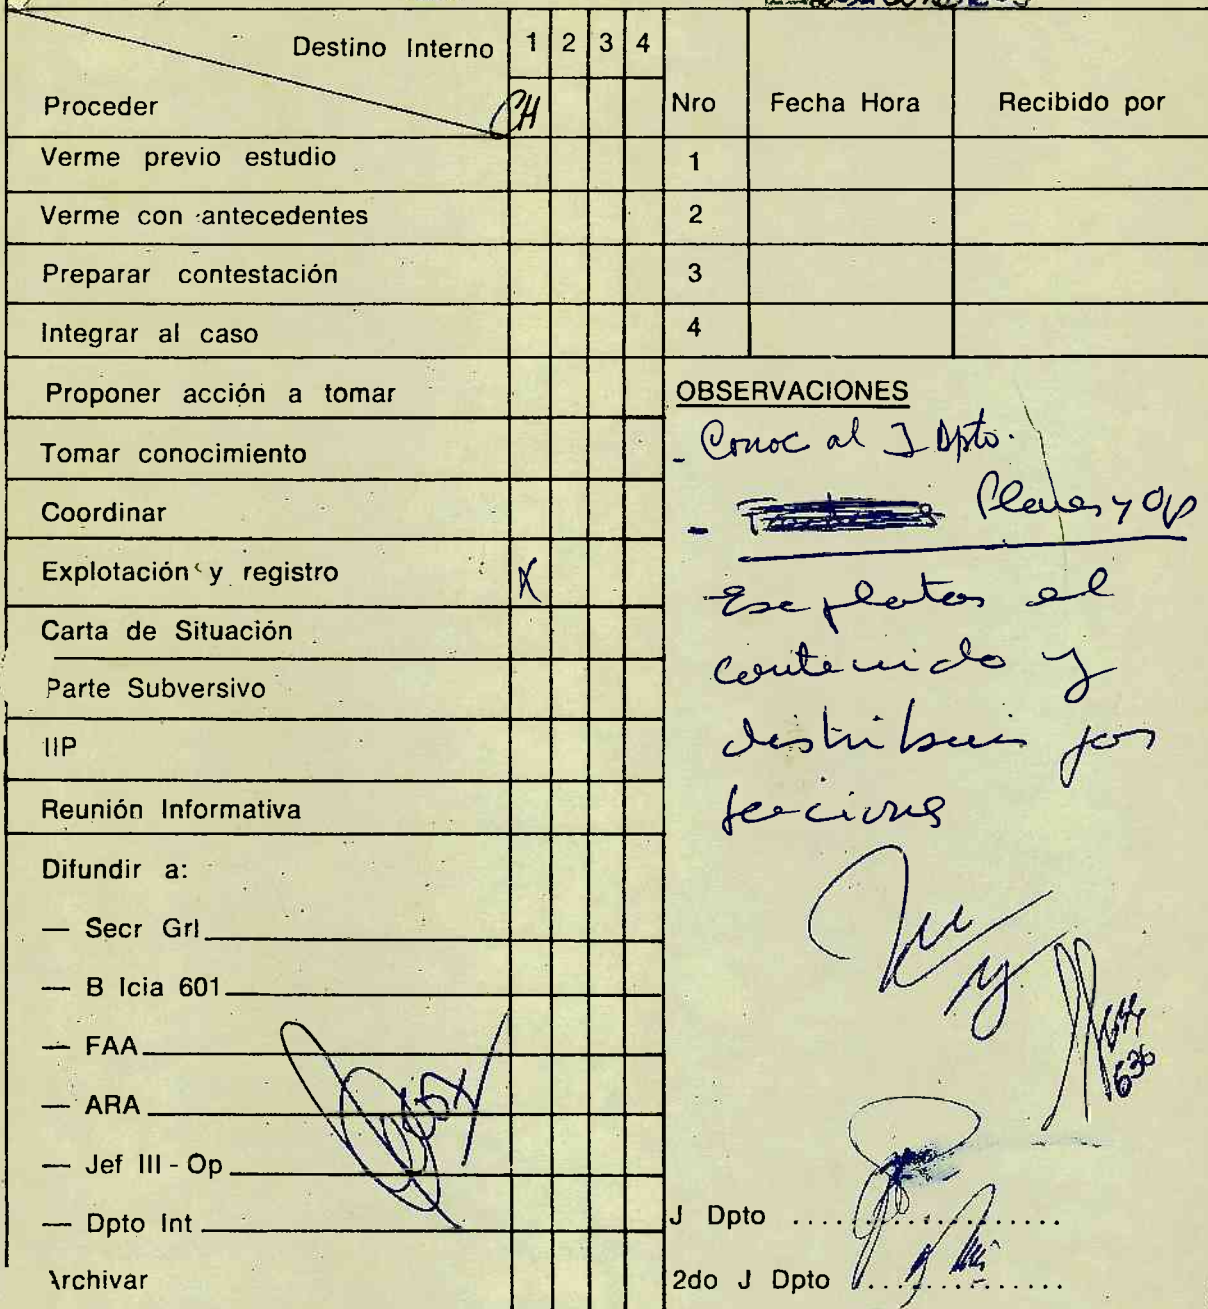 Destino Interno 1 2 3 4
Proceder CH
Nro Fecha Hora Recibido por
Verme previo estudio
1
Verme con antecedentes
2
Preparar contestación
3
Integrar al caso
4
Proponer acción a tomar
Tomar conocimiento
Coordinar
Explotación y registro X
Carta de Situación
Parte Subversivo
IIP
Reunión Informativa
Difundir a:
— Secr Grl
— B Icia 601
— FAA
— ARA
— Jef III - Op
— Dpto Int
Archivar
OBSERVACIONES
- Conoc al J Dpto.
- Planes y Op
contenido y
distribuir por
J Dpto
2do J Dpto